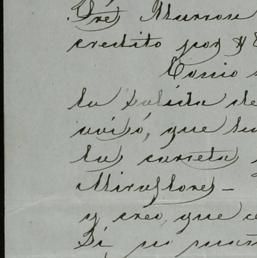 Dré Murrou
credito por $
Como
la salida de
avisó, que
la carreta
Miraflores_
y creo, que
Si, no